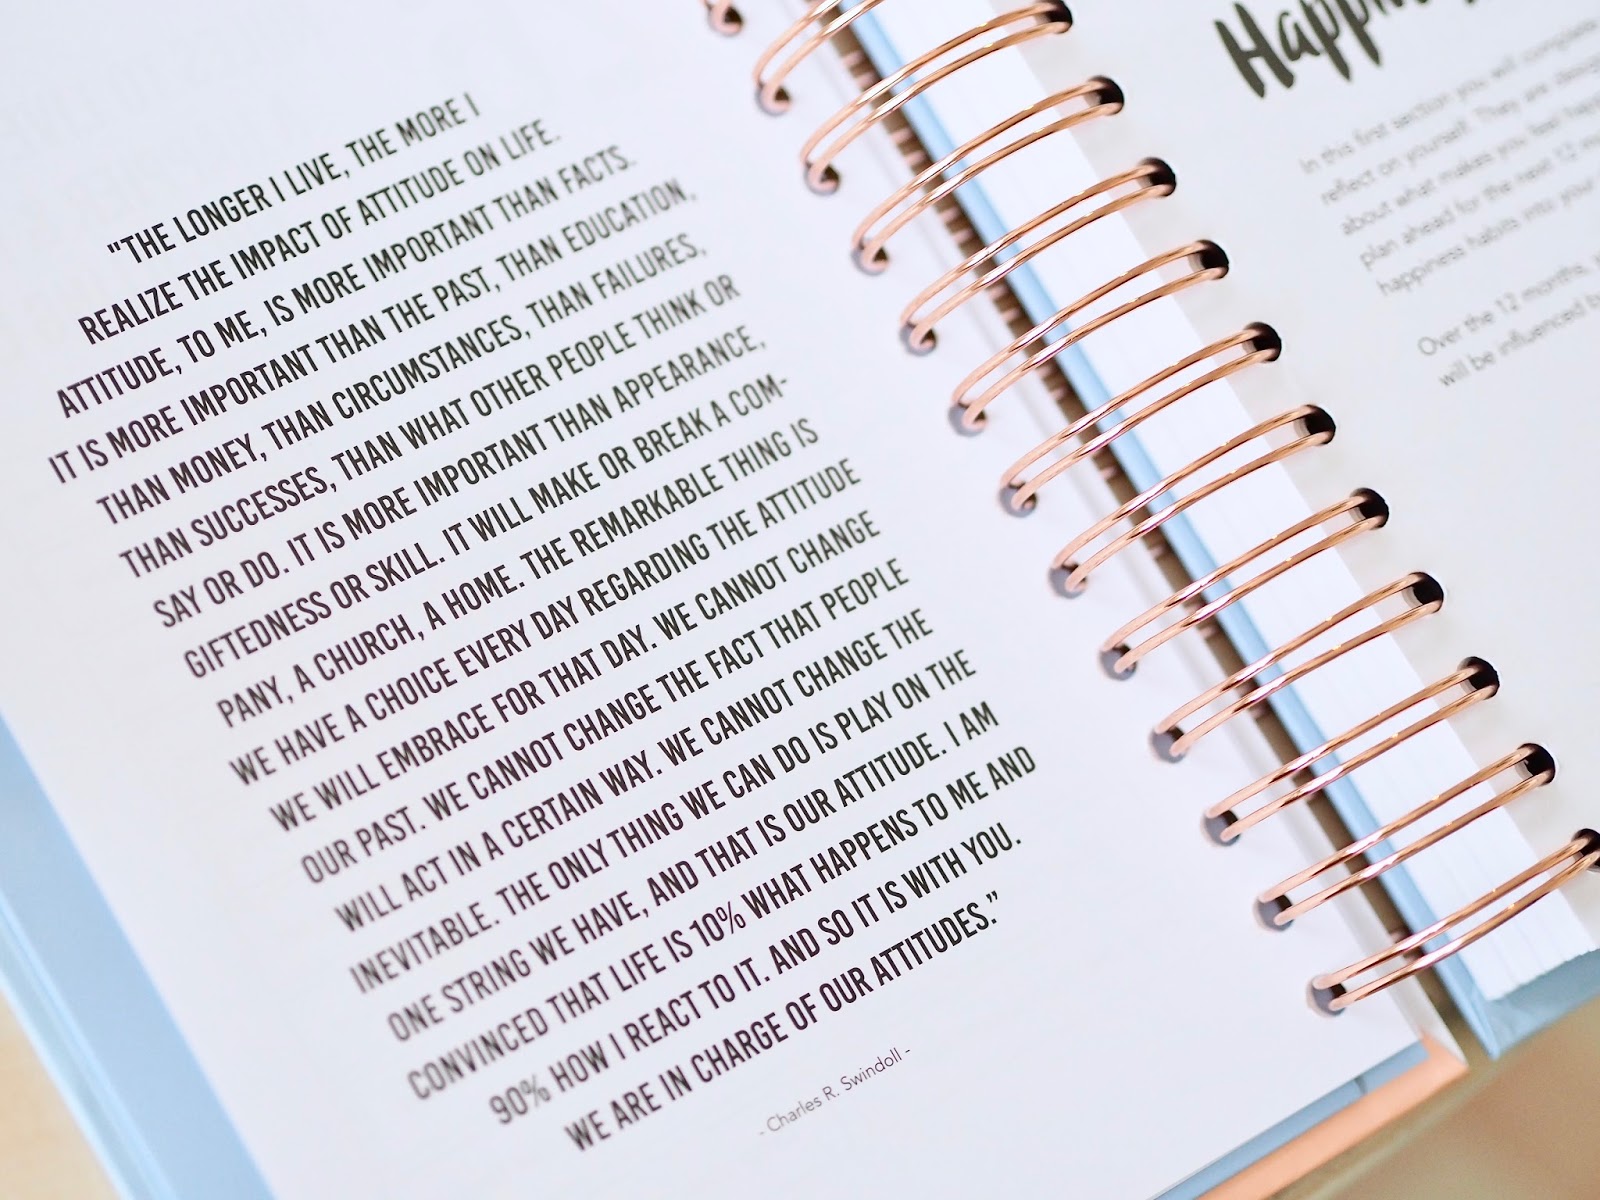 "THE LONGER I LIVE, THE MORE I
REALIZE THE IMPACT OF ATTITUDE ON LIFE.
ATTITUDE, TO ME, IS MORE IMPORTANT THAN FACTS.
IT IS MORE IMPORTANT THAN THE PAST, THAN EDUCATION,
THAN MONEY, THAN CIRCUMSTANCES, THAN FAILURES,
THAN SUCCESSES, THAN WHAT OTHER PEOPLE THINK OR
SAY OR DO. IT IS MORE IMPORTANT THAN APPEARANCE,
GIFTEDNESS OR SKILL. IT WILL MAKE OR BREAK A COM-
PANY, A CHURCH, A HOME. THE REMARKABLE THING IS
WE HAVE A CHOICE EVERY DAY REGARDING THE ATTITUDE
WE WILL EMBRACE FOR THAT DAY. WE CANNOT CHANGE
OUR PAST. WE CANNOT CHANGE THE FACT THAT PEOPLE
WILL ACT IN A CERTAIN WAY. WE CANNOT CHANGE THE
INEVITABLE. THE ONLY THING WE CAN DO IS PLAY ON THE
ONE STRING WE HAVE, AND THAT IS OUR ATTITUDE. I AM
CONVINCED THAT LIFE IS 10% WHAT HAPPENS TO ME AND
90% HOW I REACT TO IT. AND SO IT IS WITH YOU.
WE ARE IN CHARGE OF OUR ATTITUDES."
- Charles R. Swindoll -
In this first section you will complete
reflect on yourself. They are
about what makes you feel
plan ahead for the next 12
happiness habits into your
Over the 12 months,
will be influenced